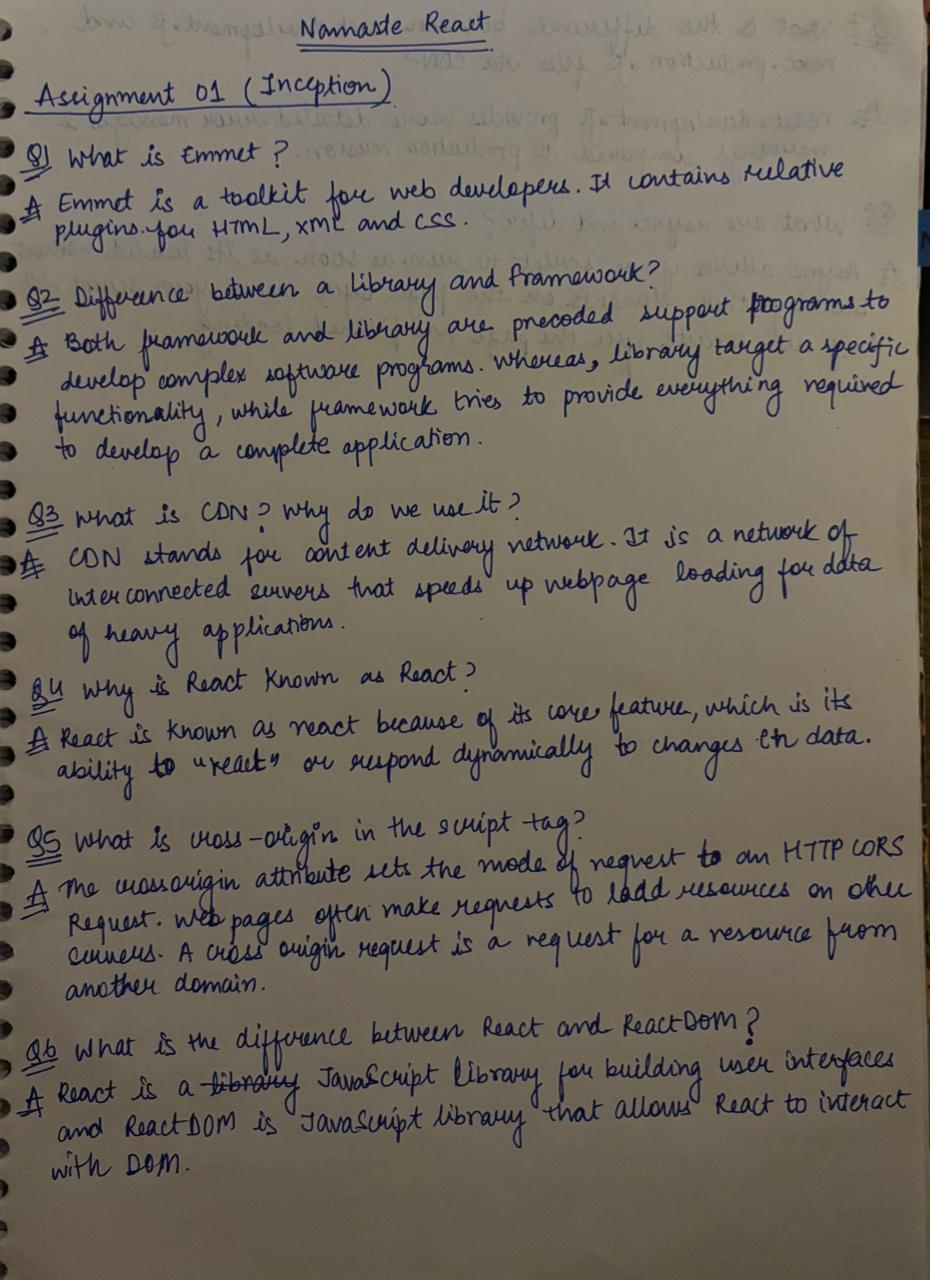 Namaste React
Assignment 01 (Inception)
Q1 What is Emmet ?
A Emmet is a toolkit for web developers. It contains relative
plugins for HTML, XML and CSS.
Q2 Difference between a library and framework?
A Both framework and library are precoded support programs to
develop complex software programs. Whereas, library target a specific
functionality, while framework tries to provide everything required
to develop a complete application.
Q3 What is CDN? Why do we use it?
A CDN stands for content delivery network. It is a network of
interconnected servers that speeds up webpage loading for data
of heavy applications.
Q4 Why is React Known as React?
A React is known as react because of its core feature, which is its
ability to "react" or respond dynamically to changes in data.
Q5 What is cross-origin in the script tag?
A The crossorigin attribute sets the mode of request to an HTTP CORS
Request. Web pages often make requests to load resources on other
servers. A cross origin request is a request for a resource from
another domain.
Q6 What is the difference between React and ReactDOM?
A React is a library JavaScript library for building user interfaces
and ReactDOM is JavaScript library that allows React to interact
with DOM.